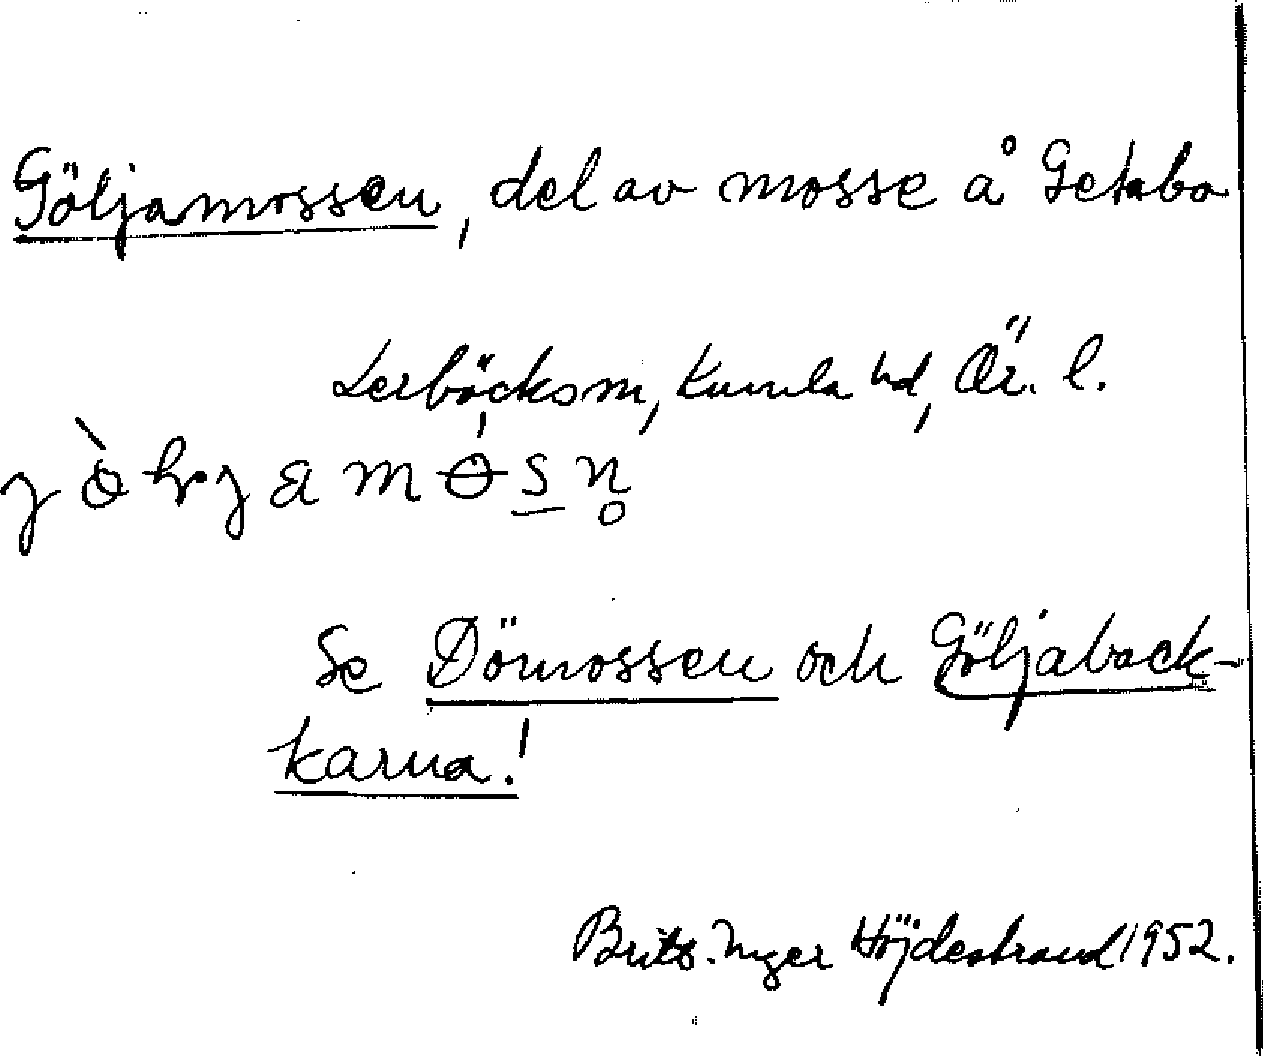 Göljamossen, del av mosse å Getabo
Lerbäcks sn, Kumla hd, Ör. l.
Se Dömossen och Göljaback-
karna!
Britt-Inger Höjdestrand 1952.